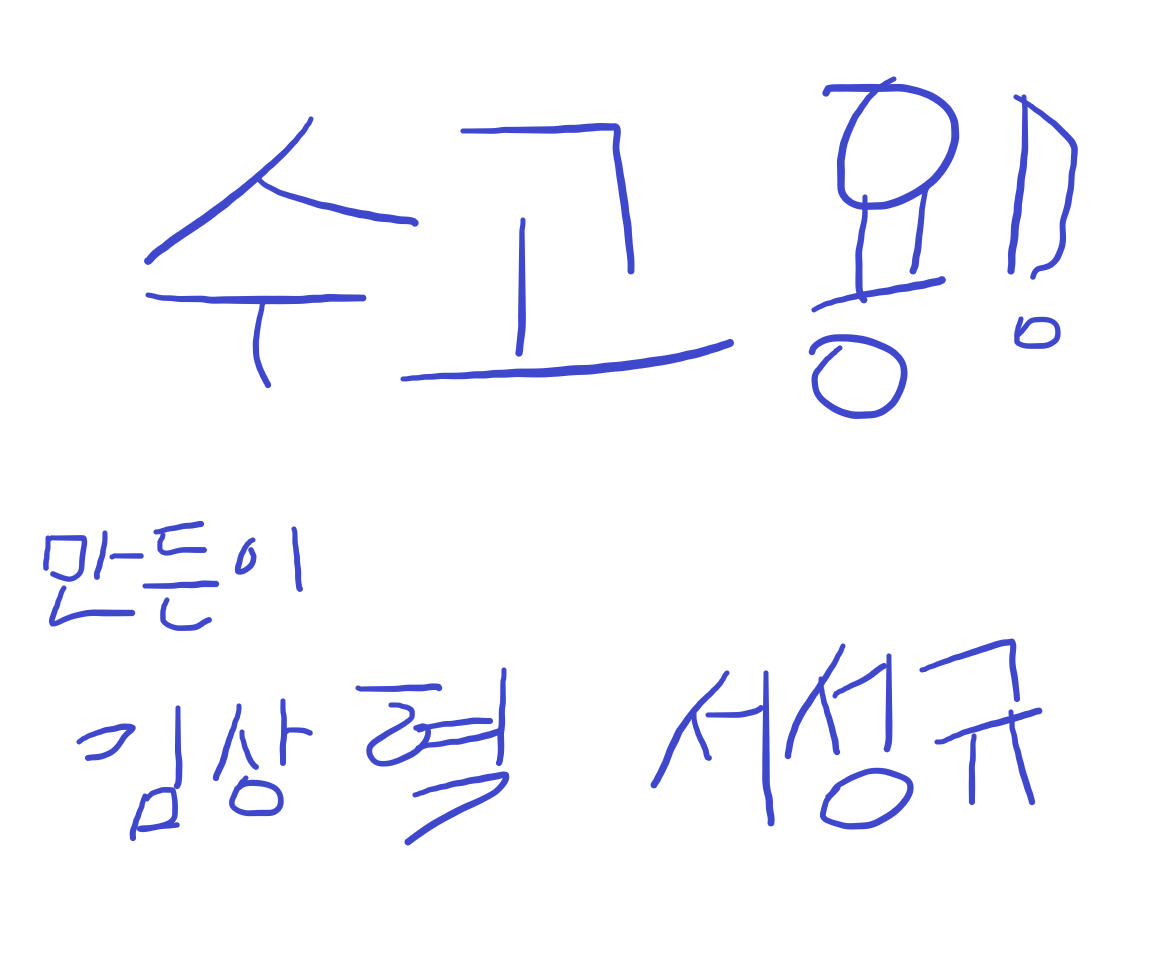 수고용!
만든이
김상혁 서성규